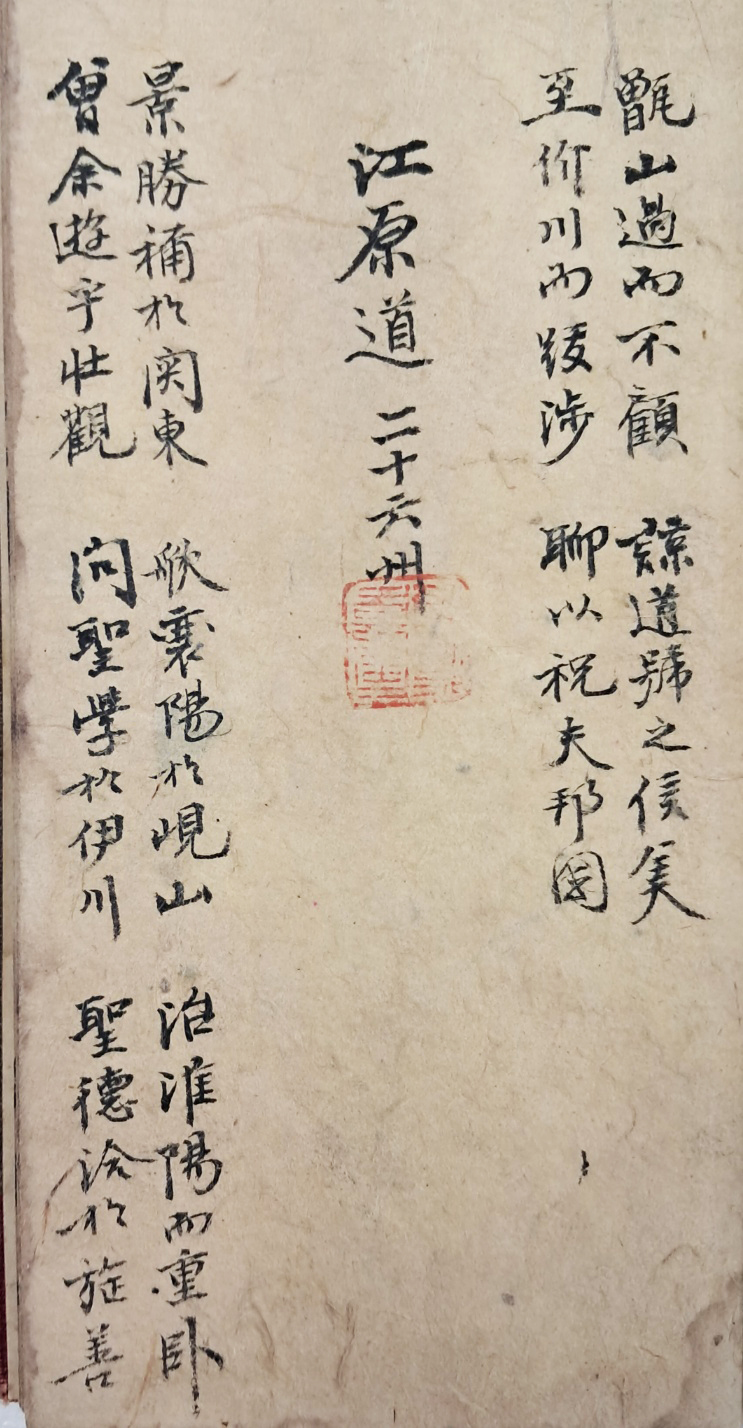 甑山過而不顧 諒道號之信美
至价川而跋涉 聊以祝夫邦國
江原道 二十六州
景勝稱於関東 襄陽於峴山 治淮陽而重卧
曾余遊乎壯觀 問聖學於伊川 聖德洽於旌善